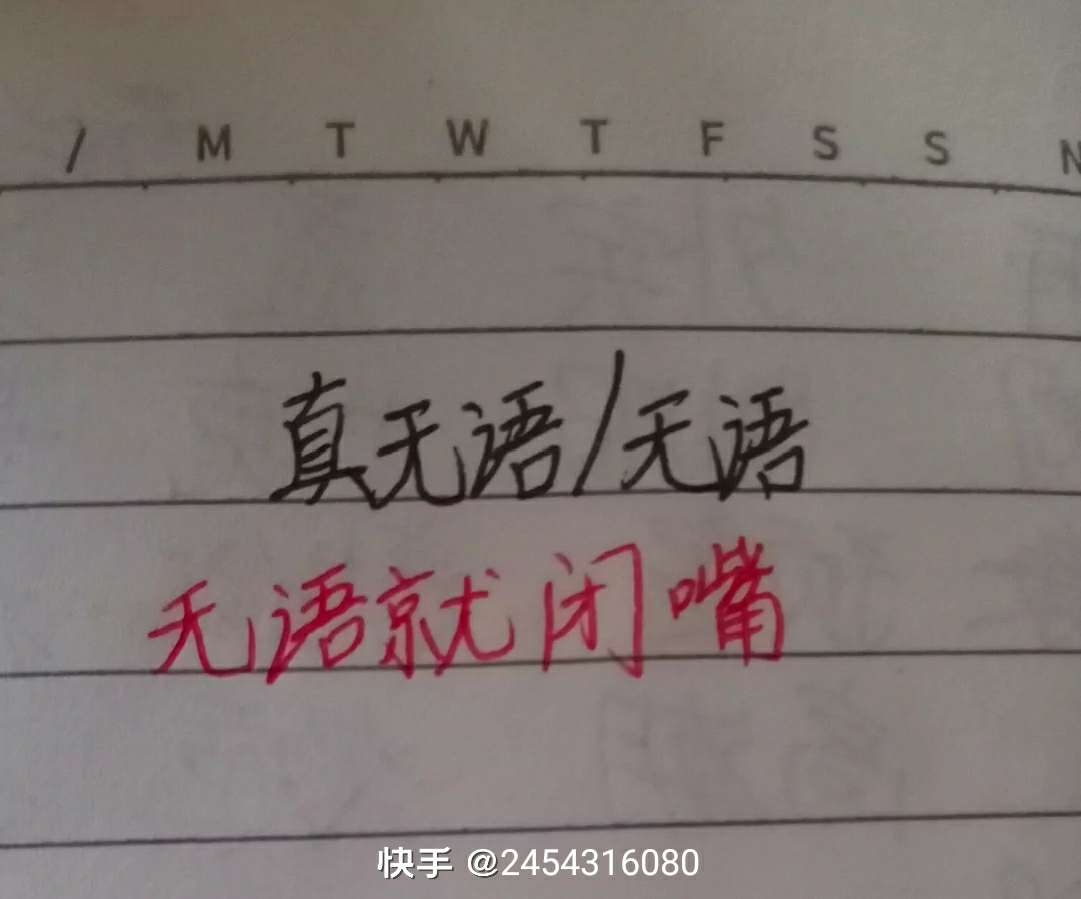 / M T W T F S S
真无语/无语
无语就闭嘴
快手 @2454316080